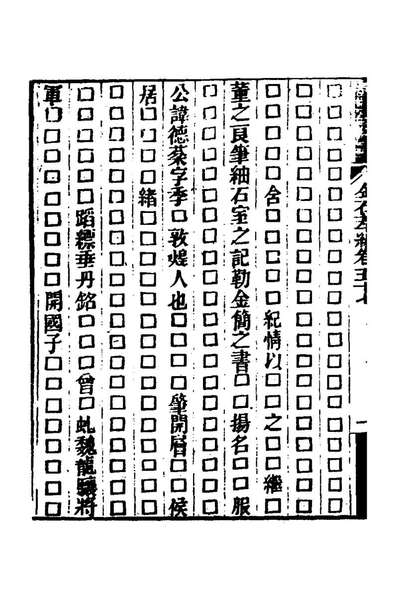 金石萃編卷五十七
□□□□□□□□□□□□□□□□□□□□□
□□□□□□□□□□□□□□□□□□□□□
□□□□□含□□□□□紀情以□□之□□繼□
董之良筆紬石室之記勒金簡之書□□揚名□□服
公諱德棻字季□敦煌人也□□□□肇開□□侯
居□□□□緒□□□□□□□□□□□□□□□
□□□□□□□□□□□□□□□□□□□□□
□□□□□□蹈縹垂丹銘□□□曾□虬魏龍驤將
軍□□□□□□□□□開國子□□□□□□□□